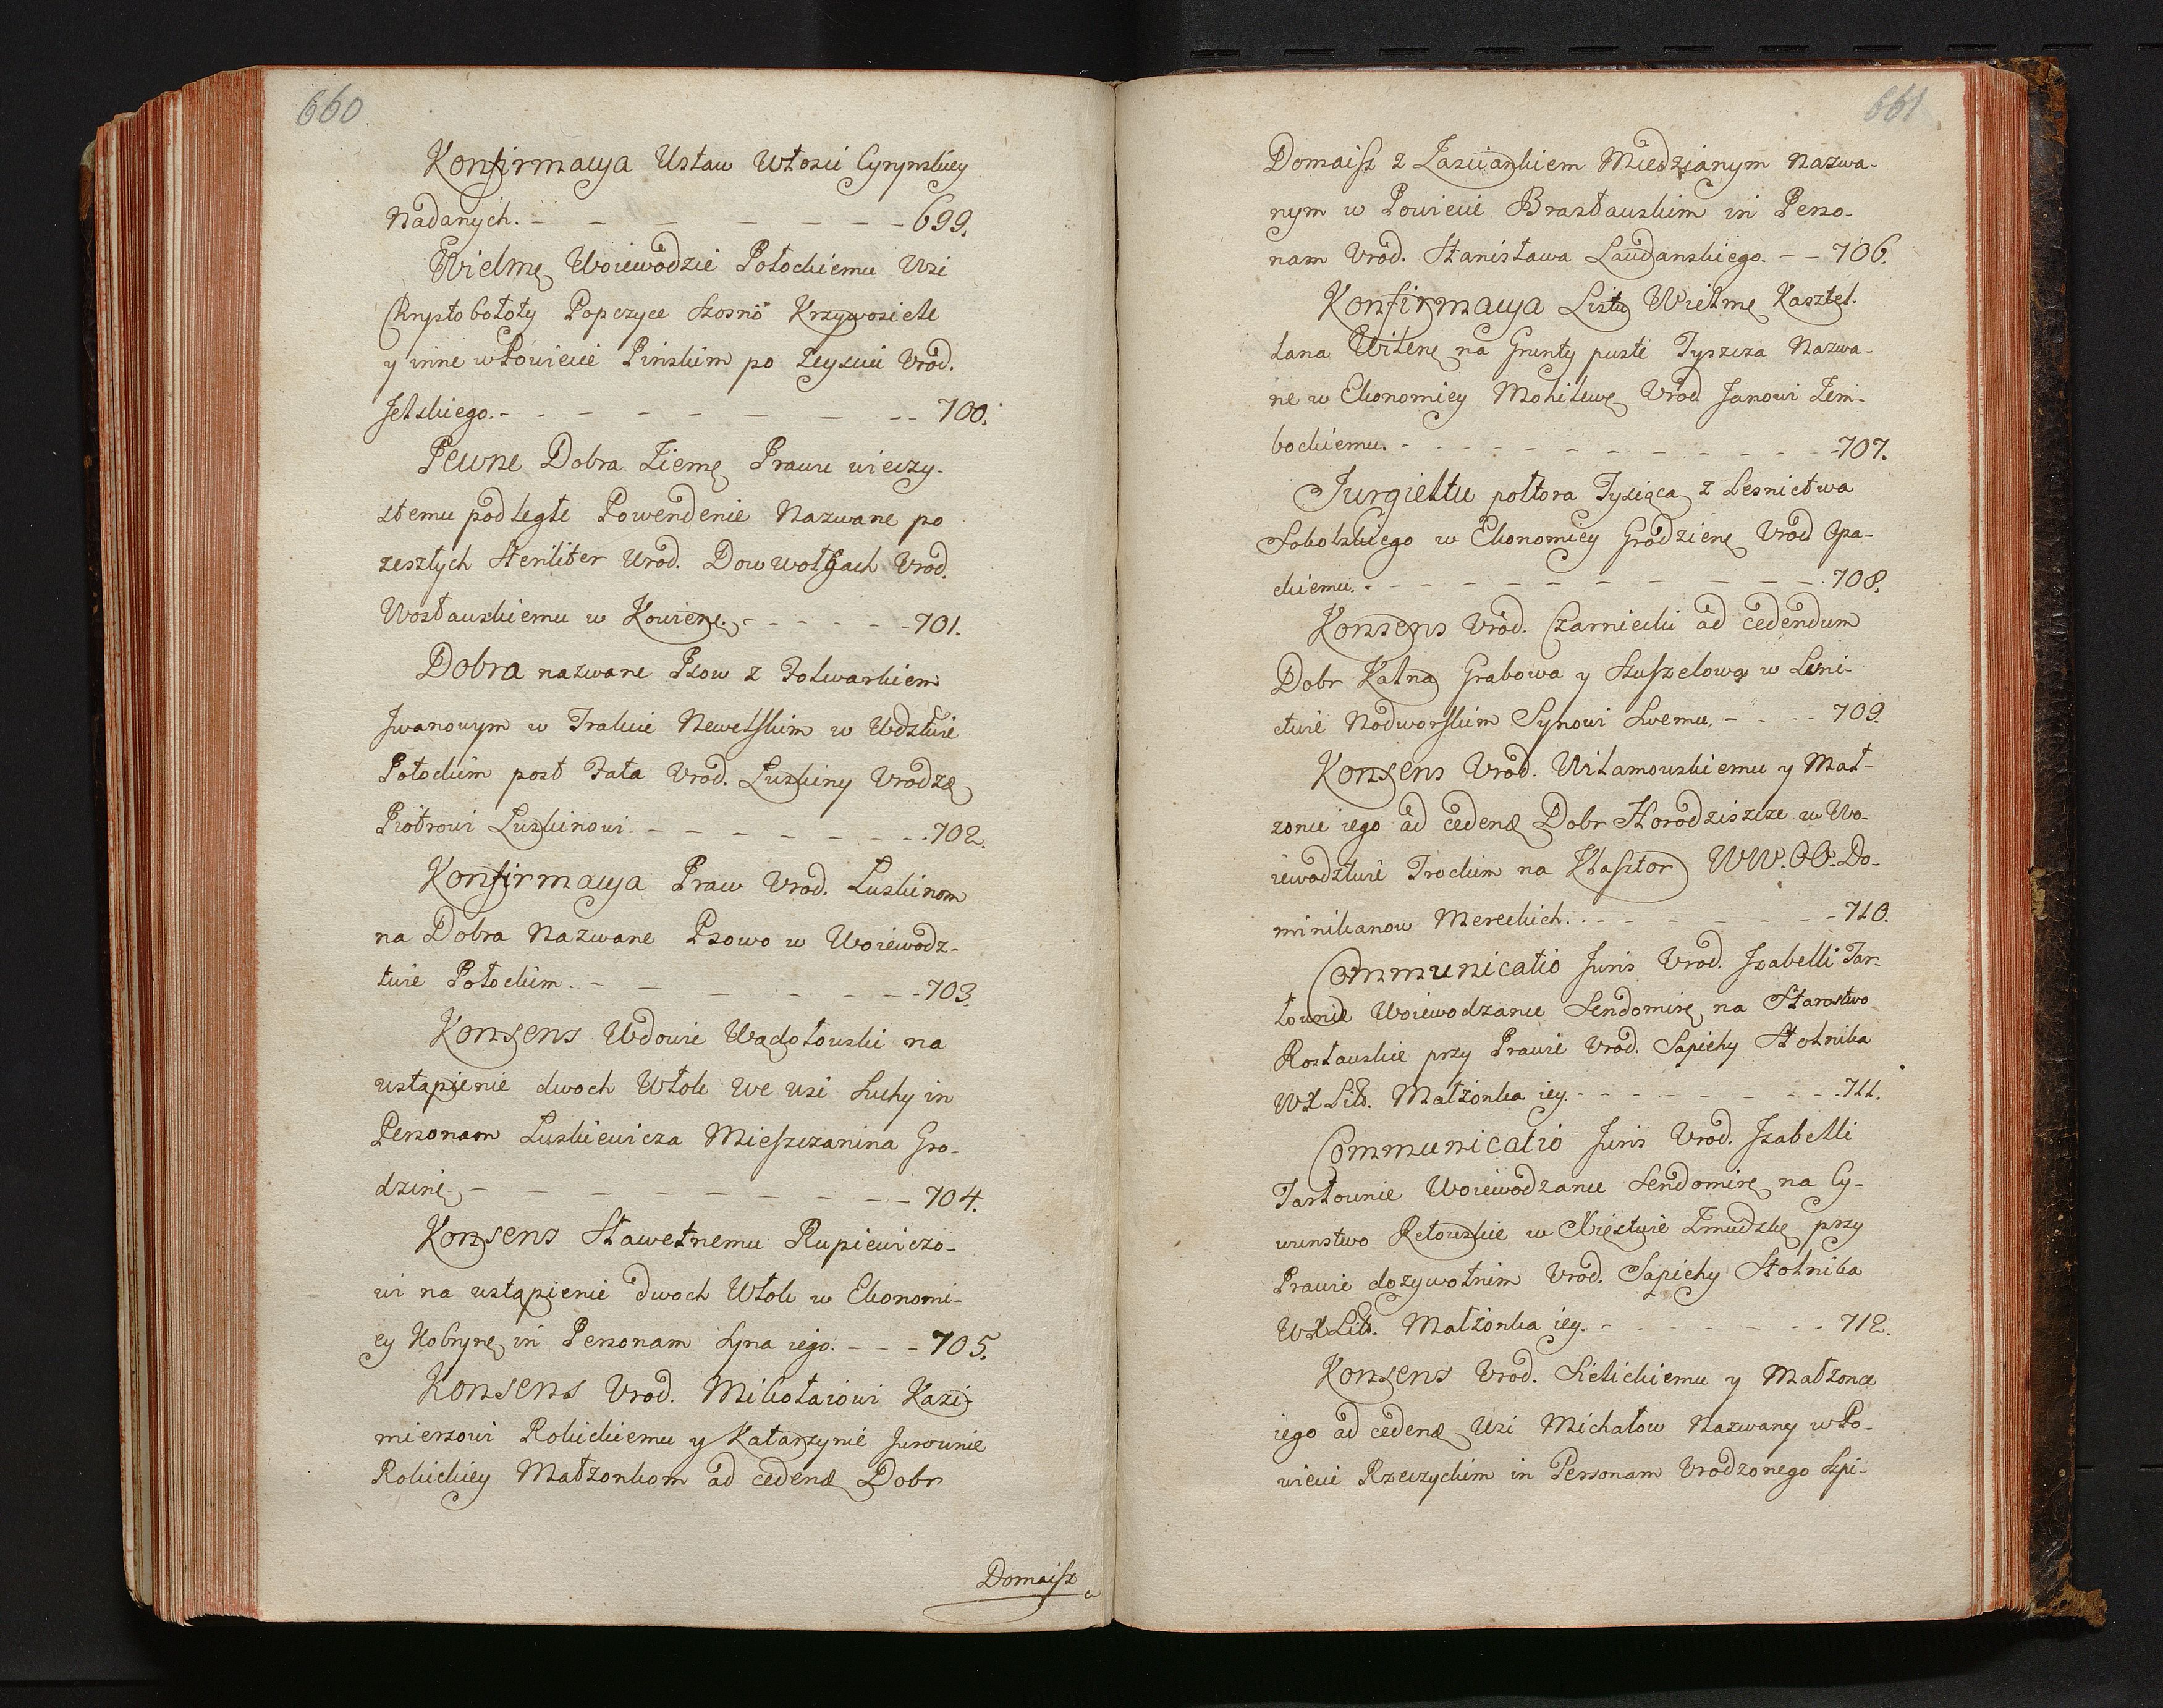 660.
Konfirmacya Ustaw Włosci Cyrynskiey
Nadanych. - - - - - - - 699.
Wielmę Woiewodzie Połockiemu Wsi
Chrystobołoty Popczyce Szosno Krzywosielle
y inne w Powiecie Pinskim po Zeysciu Vrod.
Jelskiego. - - - - - - - - 700.
Pewne Dobra Ziemę Prawu wieczy-
stemu podległe Powendenie Nazwane po
zeszłych Steriliter Urod. Dowwotgach Vrod.
Wosławskiemu w Kowienę. - - - - - 701.
Dobra nazwane Psow z Folwarkiem
Jwanowym w Trakcie Newelskim w Wdztwie
Połockim post Fata Vrod. Luskiny Vrodzæ
Piotrowi Luskinowi. - - - - - - - 702.
Konfirmacya Praw Vrod. Luskinom
na Dobra Nazwane Psowo w Woiewodz-
twie Połockim. - - - - - - - 703.
Konsens Wdowie Wądołowski na
ustąpienie dwoch Włok we wsi Suchy in
Personam Luskiewicza Mieszczanina Gro-
dzinę. - - - - - - - - - 704.
Konsens Sławetnemu Rupiewiczo-
wi na ustąpienie dwoch Włok w Ekonomi-
ey Kobrynę in Personam Syna iego. - - - 705.
Konsens Vrod. Mikołaiowi Kazi-
mierzowi Rokickiemu y Katarzynie Jurewnie
Rokickiey Małzonkom ad cedenæ Dobr
Domaisz
661
Domaisz z Zasciankiem Miedzianym Nazwa-
nym w Powiecie Brasławskim in Perso-
nam Vrod. Stanisława Laudanskiego. - - 706.
Konfirmacya Listu Wielmę Kasztel-
lana Witenę na Grunty puste Tyszcza Nazwa-
ne w Ekonomiey Mohilewę Vrod Janowi Zem-
bockiemu. - - - - - - - - - - 707.
Jurgieltu połtora Tysiąca z Lesnictwa
Sokolskiego w Ekonomiey Grodzienę Vrod Opa-
ckiemu. - - - - - - - - - - 708.
Konsens Vrod. Czarniecki ad cedendum
Dobr Kalna Grabowa y Szuszelowa w Leni-
ctwie Nodworskim Synowi Swemu. - - - - 709.
Konsens Vrod. Witamowskiemu y Mał-
zonce iego ad cedenæ Dobr Horodziszcze w Wo-
iewodztwie Trockim na Klasztor WW. OO. Do-
minikanow Mereckich. - - - - - - - 710.
Communicatio Juris Vrod. Jzabelli Tar-
łownie Woiewodzance Sendomirę na Starostwo
Rosławskie przy Prawie Vrod. Sapiehy Stolnika
WX Litt. Małżonka iey. - - - - - - - 711.
Communicatio Juris Vrod. Jzabelli
Tarłownie Woiewodzance Sendomirę na Cy-
wunstwo Retowskie w Xięstwie Zmudzkę przy
Prawie dozywotnim Vrod. Sapiehy Stolnika
WX Litt. Małżonka iey. - - - - - - - 712.
Konsens Vrod. Sielickiemu y Małzonce
iego ad cedenæ Wsi Michałow Nazwaney w Po-
wiecie Rzeczyckim in Personam Vrodzonego Szpi-